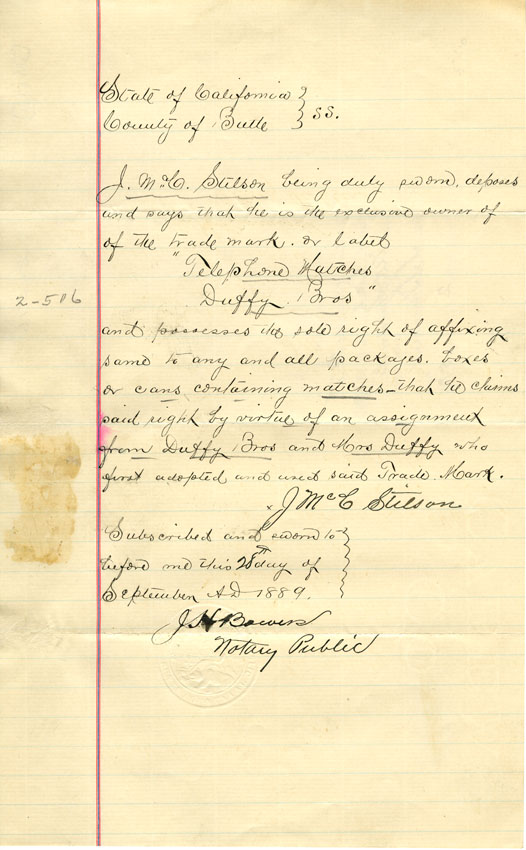 State of California }
County of Butte } SS.
J. McC. Stilson being duly sworn, deposes
and says that he is the exclusive owner of
of the trade mark. or label
"Telephone Matches
Duffy Bros"
2-516
and possesses the sole right of affixing
same to any and all packages. boxes
or cans containing matches - that he claims
said right by virtue of an assignment
from Duffy Bros and Mrs Duffy who
first adopted and used said Trade Mark.
x J McC Stilson
Subscribed and sworn to
before me this 28th day of
September AD 1889.
J H Bowers
Notary Public